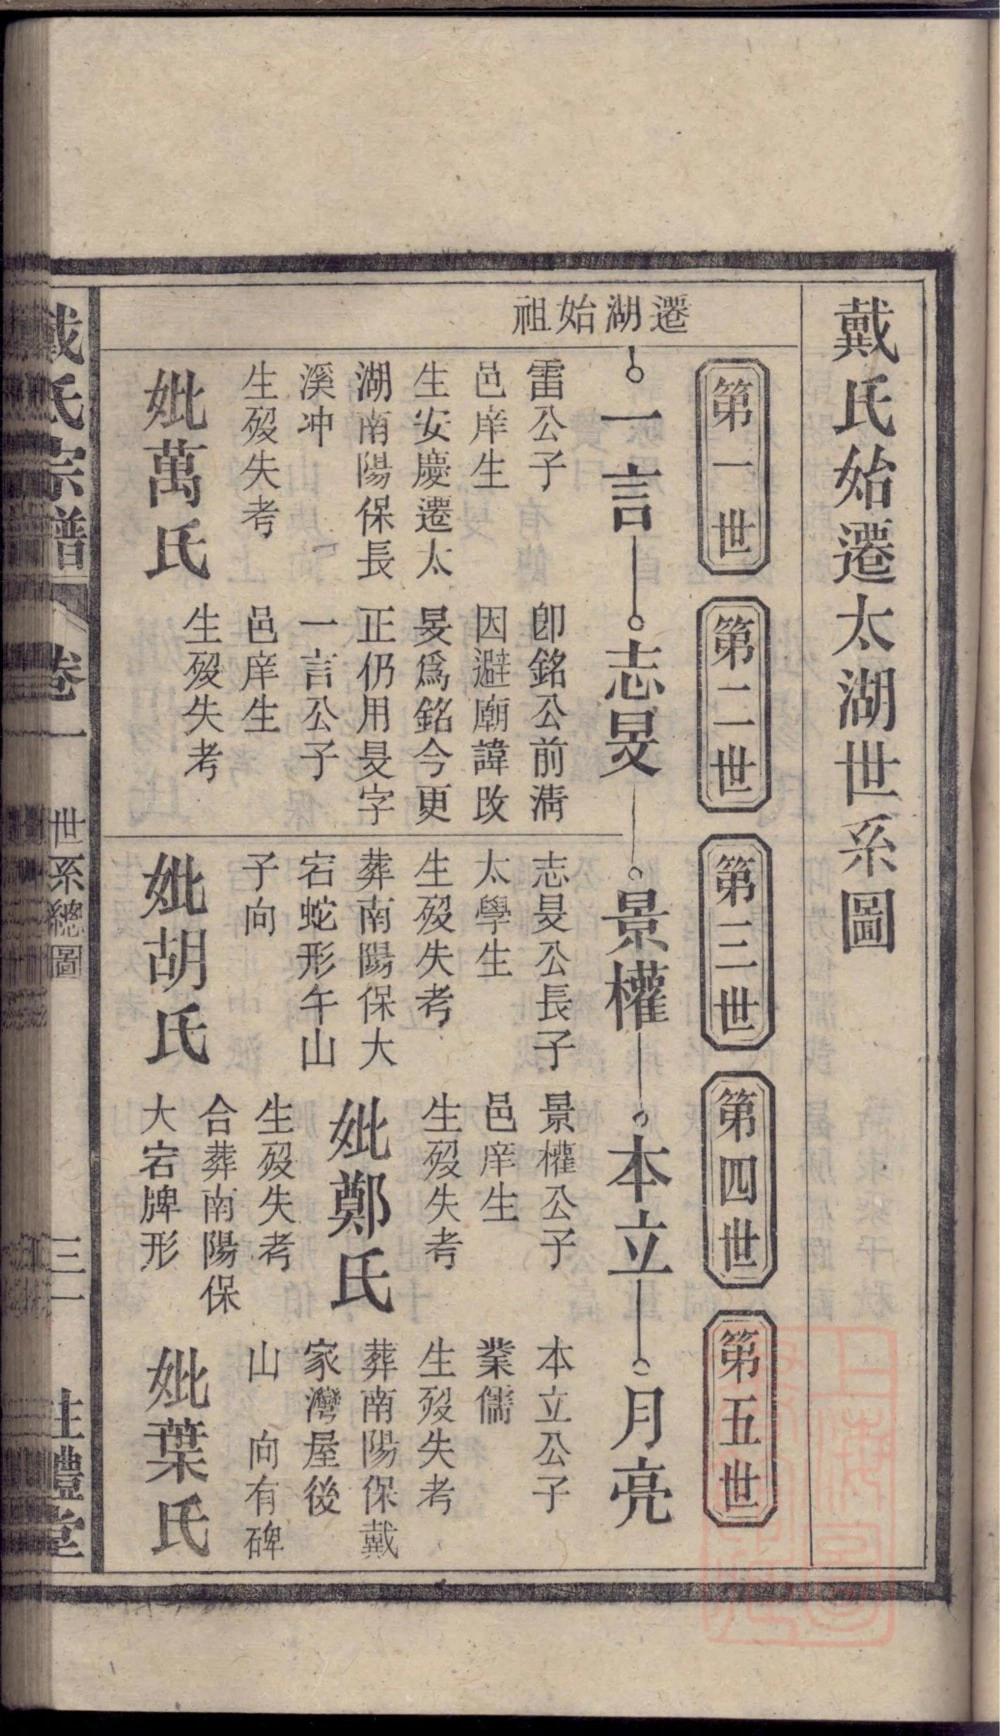 戴氏始遷太湖世系圖
第一世
第二世
第三世
第四世
第五世
遷湖始祖
一言
志旻
景權
本立
月亮
雷公子
邑庠生
生安慶遷太
湖南陽保長
溪冲
生歿失考
妣萬氏
卽銘公前淸
因避廟諱改
旻爲銘今更
正仍用旻字
一言公子
邑庠生
生歿失考
志旻公長子
太學生
生歿失考
葬南陽保大
宕蛇形午山
子向
妣胡氏
景權公子
邑庠生
生歿失考
妣鄭氏
生歿失考
合葬南陽保
大宕牌形
本立公子
業儒
生歿失考
葬南陽保戴
家灣屋後
山 向有碑
妣葉氏
戴氏宗譜
卷一
世系總圖
三一
註禮堂